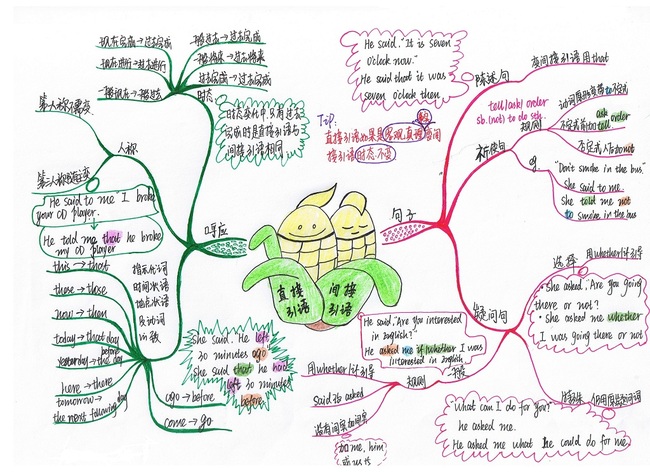 现在完成→过去完成
现在进行→过去进行
一般现在→一般过去
一般过去→过去完成
一般将来→过去将来
过去完成→过去完成
时态
时态变化中,只有过去
完成时是直接引语与
间接引语相同
人称
He said to me "I broke
your CD player.
He told me that he broke
my CD player
呼应
this → that
these → those
now → then
today → that day
yesterday → the day before
here → there
tomorrow →
the next following day
指示代词
时间状语
地点状语
及动词
ago → before
come → go
She said. He left
30 minutes ago
She said that he had
left 30 minutes
before
直接
引语
间接
引语
句子
He said. "It is seven
o'clock now."
He said that it was
seven o'clock then.
Tip:
直接引语如果是客观真理
间接引语时态不变
陈述句
变间接引语用that
祈使句
tell/ask/order
sb. (not) to do sth.
规则
ask
tell order
不定式前加not
eg.
"Don't smoke in the bus."
She said to me.
She told me not
to smoke in the bus
疑问句
选择
用whether/if引导
She asked, "Are you going
there or not?
She asked me whether
I was going there or not
特殊
"What can I do for you?
he asked me.
He asked me what he could do for me.
一般
He said "Are you interested
in English?"
He asked me if/whether I was
interested in English
规则
用whether/if引导
Said改 asked
没有间宾加间宾
如me, him
或us等